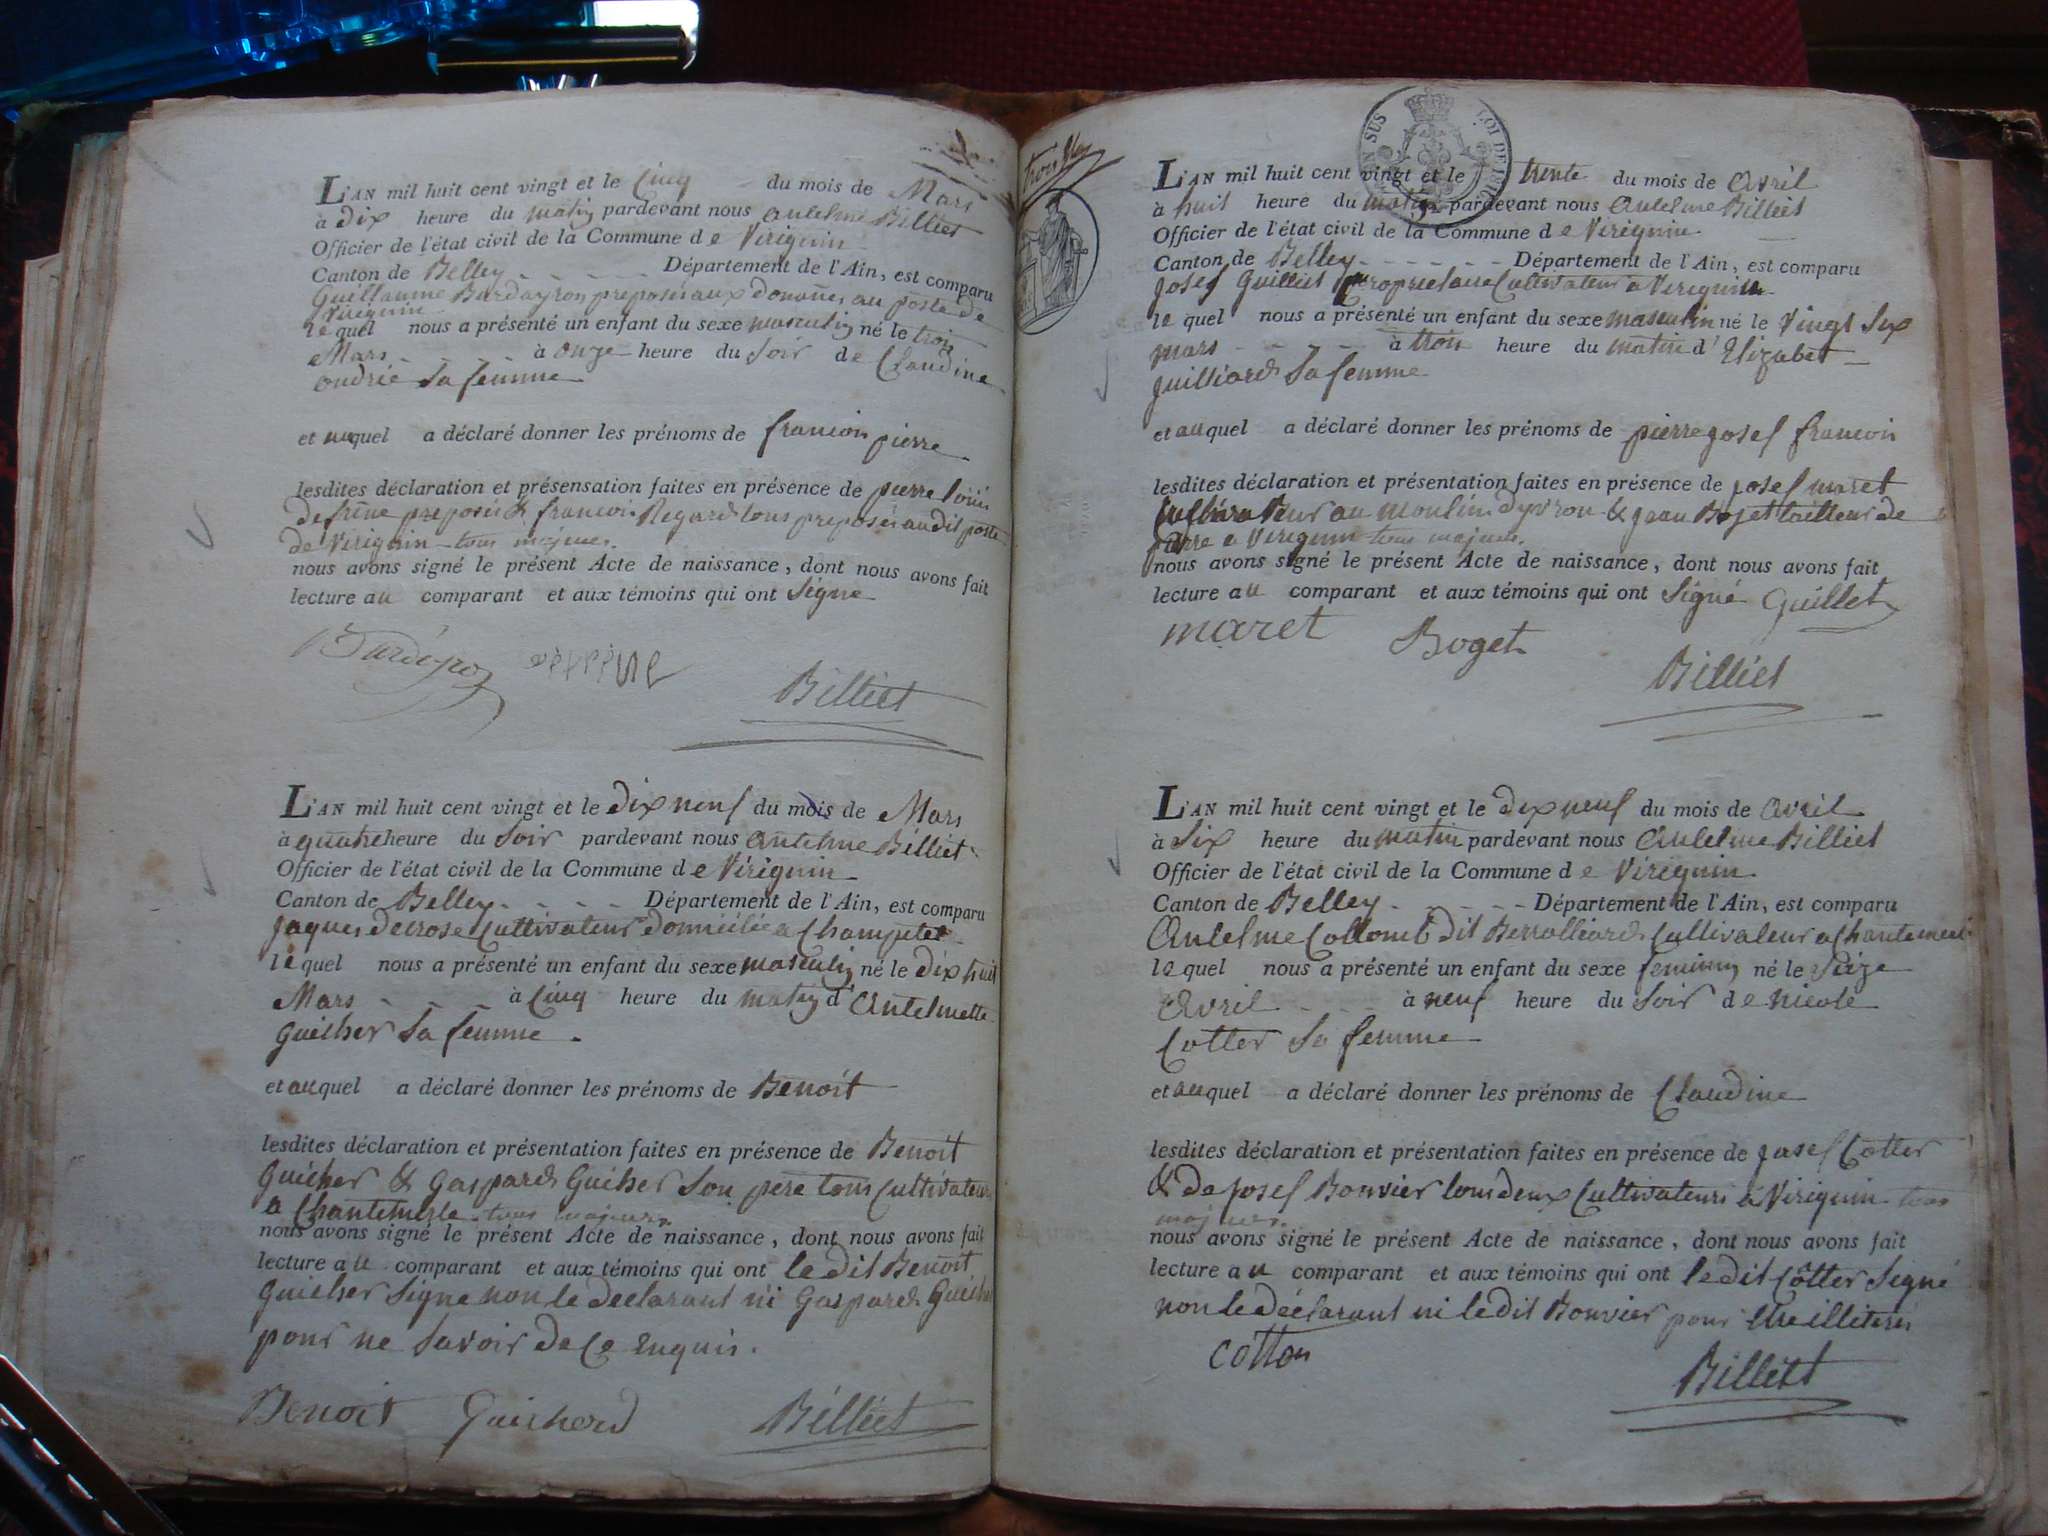 L'AN mil huit cent vingt et le Cinq du mois de Mars
à dix heure du matin pardevant nous antelme Billiet
Officier de l'état civil de la Commune de Virignin
Canton de Belley Département de l'Ain, est comparu
Guillaume preposé aux douanes au poste de
Virignin
lequel nous a présenté un enfant du sexe masculin né le trois
Mars à onze heure du Soir de Claudine
Sa femme
et auquel a déclaré donner les prénoms de francois pierre
lesdites déclaration et présensation faites en présence de pierre
preposé & francois Regard tous preposés au dit poste
de Virignin tous majeurs.
nous avons signé le présent Acte de naissance, dont nous avons fait
lecture au comparant et aux témoins qui ont Signe
Billiet
L'AN mil huit cent vingt et le dix neuf du mois de Mars
à quatre heure du Soir pardevant nous antelme Billiet
Officier de l'état civil de la Commune de Virignin
Canton de Belley Département de l'Ain, est comparu
Jaques Decrose Cultivateur domicilié a
lequel nous a présenté un enfant du sexe masculin né le dix huit
Mars à Cinq heure du matin d'Antelmette
guicher Sa femme.
et auquel a déclaré donner les prénoms de Benoit
lesdites déclaration et présentation faites en présence de Benoit
guicher & gaspard Guicher Son pere tous Cultivateurs
a Chantemerle tous majeurs.
nous avons signé le présent Acte de naissance, dont nous avons fait
lecture au comparant et aux témoins qui ont le dit Benoit
guicher Signe non le declarant ni Gaspard Guicher
pour ne Savoir de Ce enquis.
Benoit Guicherd Billiet
trois
L'AN mil huit cent vingt et le trente du mois de avril
à huit heure du matin pardevant nous Antelme Billiet
Officier de l'état civil de la Commune de Virignin
Canton de Belley Département de l'Ain, est comparu
Josef Guilliet proprietaire Cultivateur à Virignin
lequel nous a présenté un enfant du sexe masculin né le Vingt Six
mars à trois heure du matin d'Elizabet
guilliard Sa femme
et auquel a déclaré donner les prénoms de pierre josef francois
lesdites déclaration et présentation faites en présence de josef maret
Cultivateur au moulin & jean Bojet tailleur de
pierre a Virignin tous majeurs.
nous avons signé le présent Acte de naissance, dont nous avons fait
lecture au comparant et aux témoins qui ont Signé Guillet
maret Boget
Billiet
L'AN mil huit cent vingt et le dix neuf du mois de avril
à Six heure du matin pardevant nous Antelme Billiet
Officier de l'état civil de la Commune de Virignin
Canton de Belley Département de l'Ain, est comparu
Antelme Collomb dit Berralliard Cultivateur a Chantemerle
lequel nous a présenté un enfant du sexe feminin né le Seize
Avril à neuf heure du Soir de nicole
Cotter Sa femme
et auquel a déclaré donner les prénoms de Claudine
lesdites déclaration et présentation faites en présence de josef Cotter
& de josef Bonvier tous deux Cultivateurs à Virignin tous
majeurs.
nous avons signé le présent Acte de naissance, dont nous avons fait
lecture au comparant et aux témoins qui ont le dit Côtter Signé
non le déclarant ni le dit Bonvier pour être
Billiet